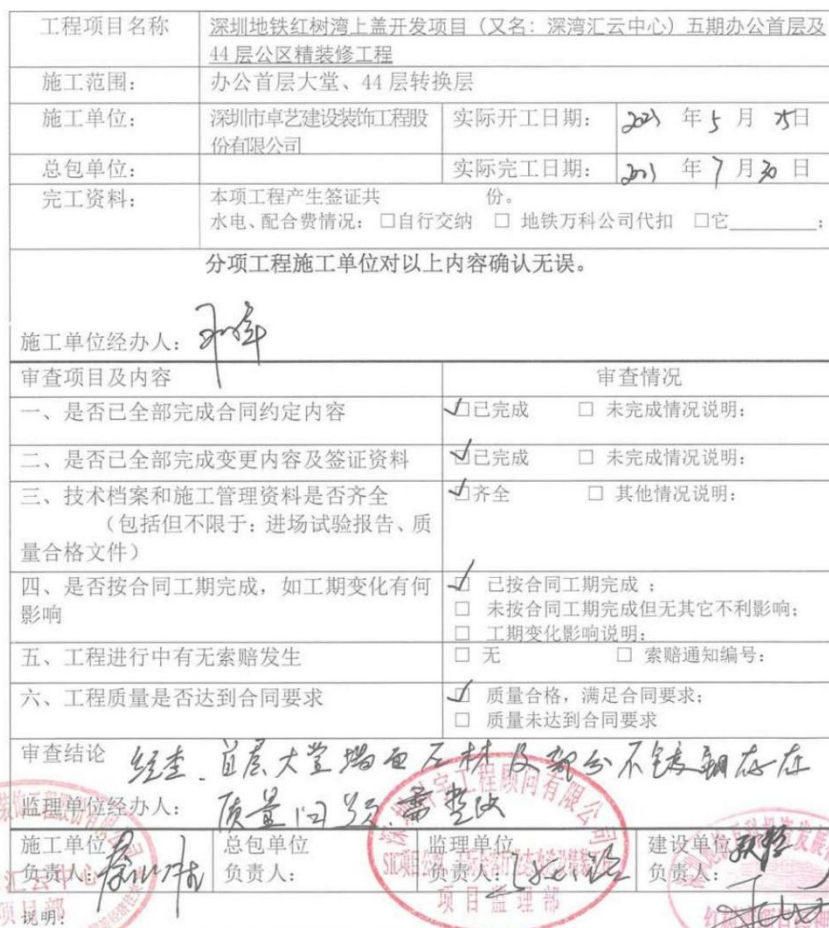 工程项目名称 深圳地铁红树湾上盖开发项目（又名：深湾汇云中心）五期办公首层及
44 层公区精装修工程
施工范围： 办公首层大堂、44 层转换层
施工单位： 深圳市卓艺建设装饰工程股 实际开工日期： 2021 年 5 月 25 日
份有限公司
总包单位： 实际完工日期： 2021 年 7 月 30 日
完工资料： 本项工程产生签证共 份。
水电、配合费情况：□自行交纳 □ 地铁万科公司代扣 □它________；
分项工程施工单位对以上内容确认无误。
施工单位经办人：
审查项目及内容 审查情况
一、是否已全部完成合同约定内容 ☑已完成 □ 未完成情况说明：
二、是否已全部完成变更内容及签证资料 ☑已完成 □ 未完成情况说明：
三、技术档案和施工管理资料是否齐全 ☑齐全 □ 其他情况说明：
（包括但不限于：进场试验报告、质
量合格文件）
四、是否按合同工期完成，如工期变化有何 ☑ 已按合同工期完成；
影响 □ 未按合同工期完成但无其它不利影响；
□ 工期变化影响说明：
五、工程进行中有无索赔发生 □ 无 □ 索赔通知编号：
六、工程质量是否达到合同要求 ☑ 质量合格，满足合同要求；
□ 质量未达到合同要求
审查结论 经查，首层大堂墙面石材及部分不锈钢存在
监理单位经办人： 质量问题，需整改
施工单位 总包单位 监理单位 建设单位
负责人： 负责人： 负责人： 负责人：
工程顾问有限公司
项目监理部
汇云中心
项目部
说明：